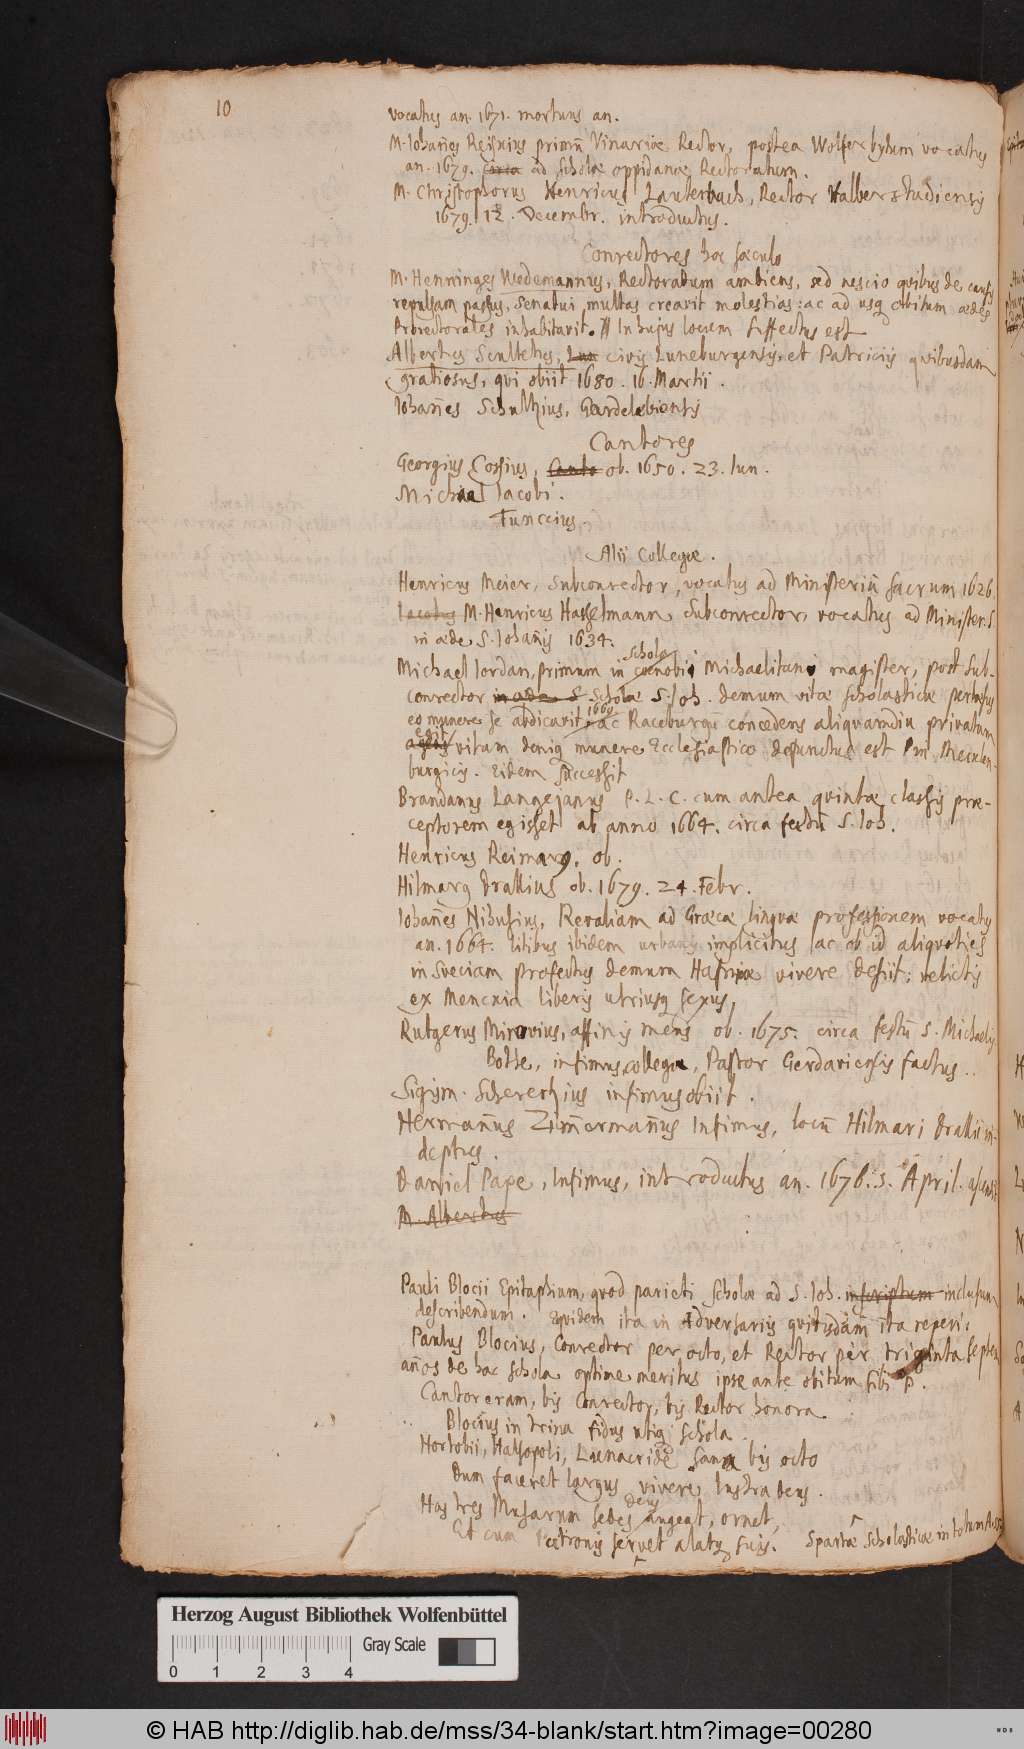 10
vocatus an. 1671. mortuus an.
M. Iohan̄es Reiskius primū Vinariæ Rector, postea Wolferbytum vocatus
an. 1679. circa ad Scholæ oppidanæ Rectoratum.
M. Christophorus Henricus Lauterbach, Rector Halberstadiensis
1679. 12. Decembr. introductus.
Conrectores hoc sæculo
M. Henninges Wedemannus, Rectoratum ambiens, sed nescio quibus de causis
repulsam passus, Senatui multas creavit molestias: ac ad usq obitum ædes
Prorectorales inhabitavit. In hujus locum suffectus est
Albertus Scultetus, Lun civis Luneburgensis, et Patriciis quibusdam
gratiosus, qui obiit 1680. 16. Martii.
Iohan̄es Schultzius, Gardelebiensis
Cantores
Georgius Cossius, Canto ob. 1650. 23. Iun.
Michael Iacobi.
Funccius.
Alii Collegæ.
Henricus Meier, Subconrector, vocatus ad Ministeriū sacrum 1626.
Iacobus M. Henricus Hasselmann Subconrector, vocatus ad Minister. S.
in æde S. Iohan̄is 1634.
Michael Iordan, primum in scholæ coenobii Michaelitani magister, post Sub-
conrector in æde S Scholæ S. Ioh. demum vitæ scholasticæ pertæsus
eo munere se abdicavit 1660 ac Raceburgū concedens aliquamdiu privatam
agens egit vitam deniq munere Ecclesiastico defunctus est in Meculen-
burgicis. Eidem successit
Brandanus Langejanus P. L. C. cum antea quintæ classis præ-
ceptorem egisset ab anno 1664. circa festū S. Ioh.
Henricus Reimarus. ob.
Hilmarus Drallius ob. 1679. 24. Febr.
Iohan̄es Nihusius, Revaliam ad Græcæ linguæ professionem vocatus
an. 1664. litibus ibidem urbanis implicitus ac ob id aliquoties
in Sveciam profectus demum Hafniæ vivere desiit: relictis
ex Mencxia liberis utriusq sexus,
Rutgerus Mirovius, affinis meus ob. 1675. circa festū S. Michaelis
Botte, infimus collega, Pastor Gerdaviensis factus..
Sigism. Scherertzius infimus obiit.
Herman̄us Zim̄erman̄us Infimus, locū Hilmari Drallii in-
deptus.
Daniel Pape, Infimus, introductus an. 1676. 5. April.
M. Albertus
Pauli Blocii Epitaphium, quod parieti Scholæ ad S. Ioh. inscriptum inclusum
describendum. Equidem ita in Adversariis quibusdam ita reperi:
Paulus Blocius, Conrector per octo, et Rector per triginta septem
an̄os de hac schola optime meritus ipse ante obitum sibi P.
Cantor eram, bis Conrector, bis Rector honora
Blocius in trina fidus utiq Schola.
Hortobii, Halsopoli, Lunacridē sanx bis octo
Dum faceret largus vivere lustra deus.
Has tres Musarum sedes deus augeat, ornet,
Et cum Patronis servet alatq suis. Spartæ Scholasticæ in totum
Herzog August Bibliothek Wolfenbüttel
0 1 2 3 4 Gray Scale
© HAB http://diglib.hab.de/mss/34-blank/start.htm?image=00280